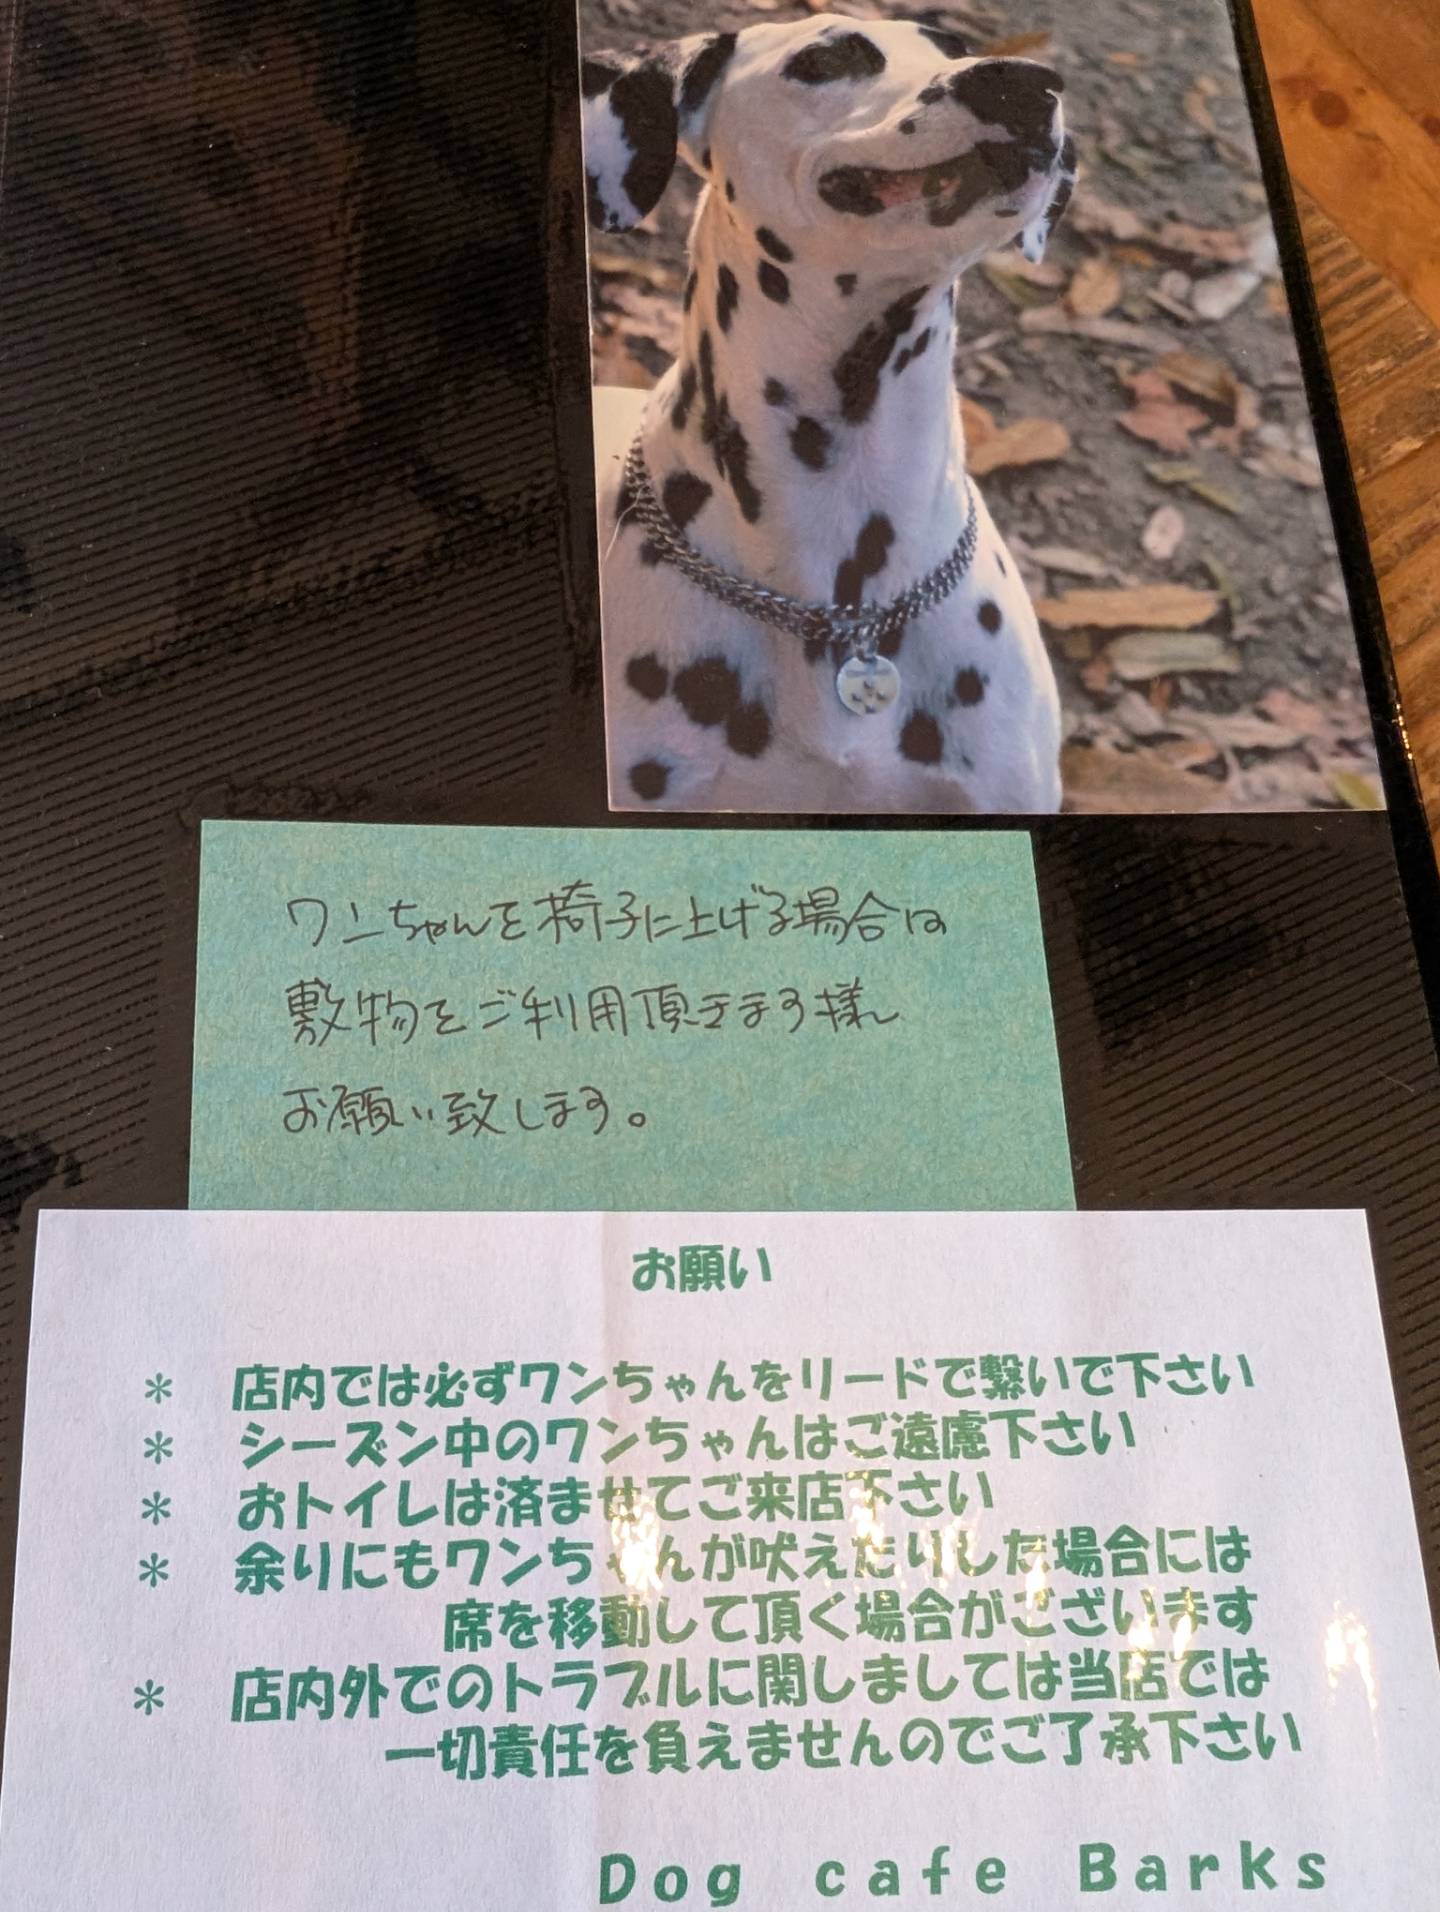 ワンちゃんを椅子に上げる場合は
敷物をご利用頂きます様
お願い致します。
お願い
＊ 店内では必ずワンちゃんをリードで繋いで下さい
＊ シーズン中のワンちゃんはご遠慮下さい
＊ おトイレは済ませてご来店下さい
＊ 余りにもワンちゃんが吠えたりした場合には
席を移動して頂く場合がございます
＊ 店内外でのトラブルに関しましては当店では
一切責任を負えませんのでご了承下さい
Dog cafe Barks